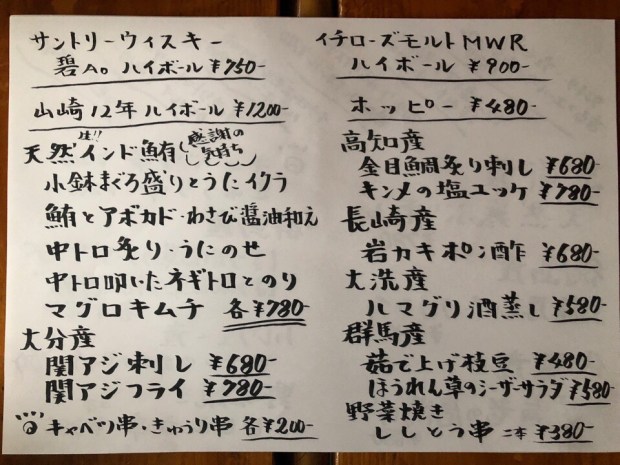 サントリーウィスキー
碧Ao ハイボール ¥750-
山崎12年ハイボール ¥1200-
生!!
天然インド鮪
感謝の
気持ち
小鉢まぐろ盛りとうにイクラ
鮪とアボカド・わさび醤油和え
中トロ炙り・うにのせ
中トロ叩いたネギトロとのり
マグロキムチ 各¥780-
大分産
関アジ刺し ¥680-
関アジフライ ¥780-
キャベツ串・きゅうり串 各¥200-
イチローズモルトMWR
ハイボール ¥900-
ホッピー ¥480-
高知産
金目鯛炙り刺し ¥680-
キンメの塩ユッケ ¥780-
長崎産
岩カキポン酢 ¥680-
大洗産
ハマグリ酒蒸し ¥580-
群馬産
茹で上げ枝豆 ¥480-
ほうれん草のシーザーサラダ ¥580-
野菜焼き
ししとう串 二本 ¥380-